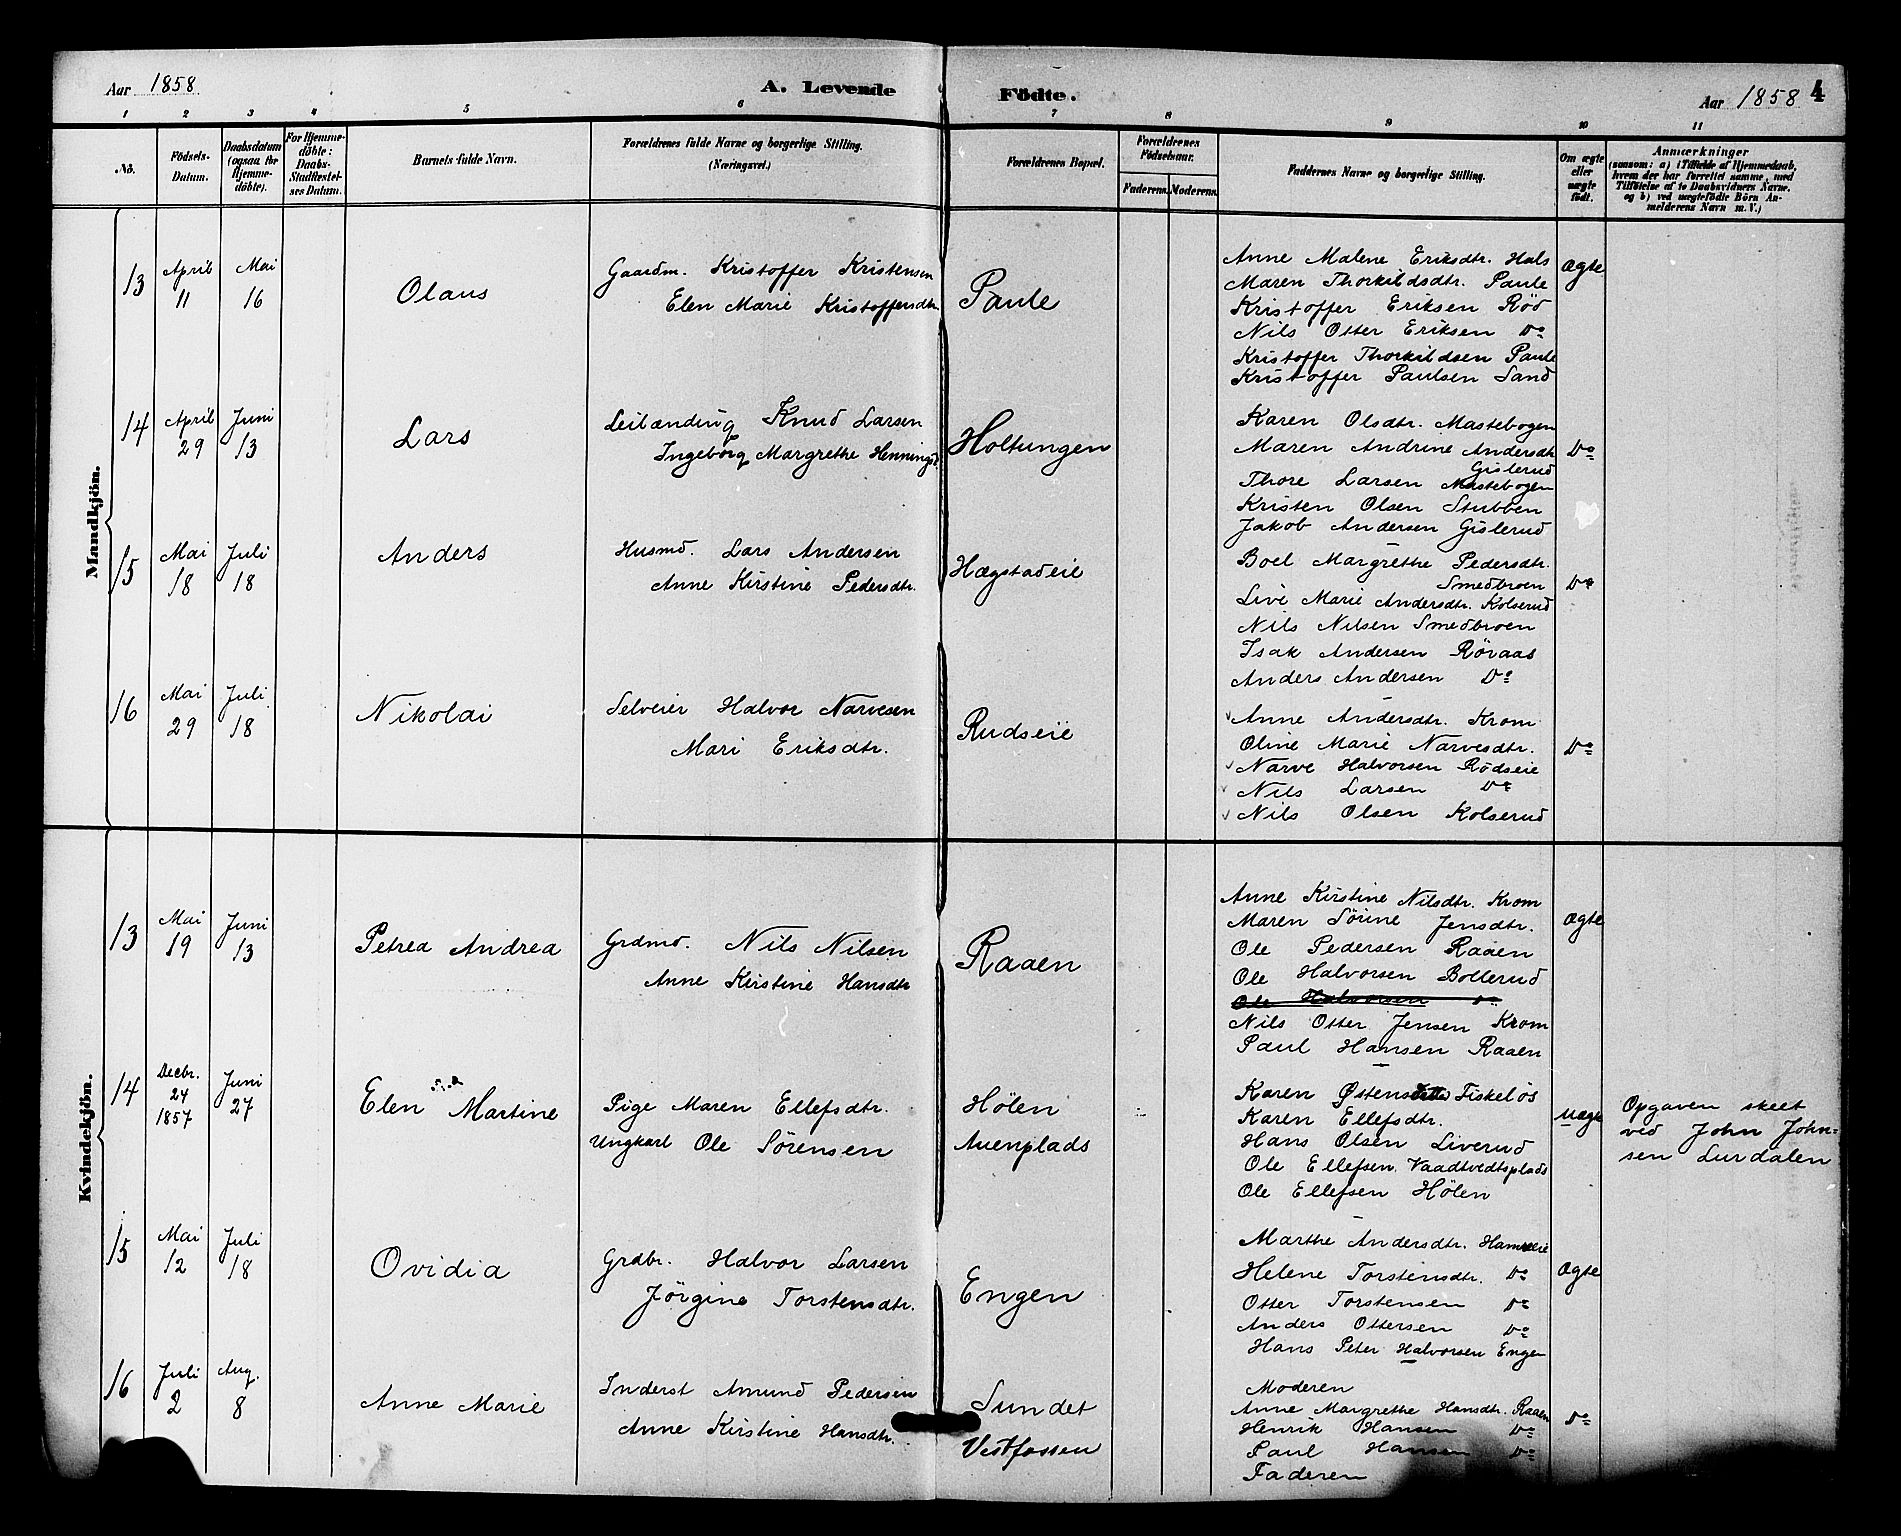 Aar 1858 A. Levende Fødte. Aar 1858 4
1 2 3 4 5 6 7 8 9 10 11
No.
Fødsels-
Datum.
Daabsdatum
(ogsaa for
Hjemme-
døbte).
For Hjemme-
døbte:
Daabs-
Stadfæstel-
ses Datum.
Barnets fulde Navn.
Forældrenes fulde Navne og borgerlige Stilling.
(Næringsvei.)
Forældrenes Bopæl.
Forældrenes
Fødselsaar.
Faderens. Moderens.
Faddernes Navne og borgerlige Stilling.
Om ægte
eller
uægte
født.
Anmærkninger
(saasom: a) i Tilfælde af Hjemmedaab,
hvem der har forrettet samme, med
Tilføielse af to Daabsvidners Navne,
og b) ved uægtefødte Børn An-
melderens Navn m. V.)
Mandkjön.
13
April
11
Mai
16
Olaus
Gaardm. Kristoffer Kristensen
Elen Marie Kristoffersdtr.
Paule
Anne Malene Eriksdtr. Hals
Maren Thorkildsdtr. Paule
Kristoffer Eriksen Rød
Nils Otter Eriksen Do
Kristoffer Thorkildsen Paule
Kristoffer Paulsen Sand
Ægte
14
April
29
Juni
13
Lars
Leilænding Knud Larsen
Ingeborg Margrethe Hennings.
Holtungen
Karen Olsdtr. Mastebogen
Maren Andrine Andersdtr
Gislerud
Thore Larsen Mastebogen
Kristen Olsen Stubben
Jakob Andersen Gislerud
Do
15
Mai
18
Juli
18
Anders
Husmd. Lars Andersen
Anne Kirstine Pedersdtr.
Hægstadeie
Boel Margrethe Pedersdtr.
Smedbroen
Live Marie Andersdtr. Kolserud
Nils Nilsen Smedbroen
Isak Andersen Røraas
Anders Andersen Do
Do
16
Mai
29
Juli
18
Nikolai
Selveier Halvor Narvesen
Mari Eriksdtr.
Rudseie
Anne Andersdtr. Krom
Oline Marie Narvesdtr.
Narve Halvorsen Rødseie
Nils Larsen Do
Nils Olsen Kolserud
Do
Kvindekjön.
13
Mai
19
Juni
13
Petrea Andrea
Grdmd. Nils Nilsen
Anne Kirstine Hansdtr
Raaen
Anne Kirstine Nilsdtr. Krom
Maren Sørine Jensdtr.
Ole Pedersen Raaen
Ole Halvorsen Bollerud
Ole Halvorsen Do
Nils Otter Jensen Krom
Paul Hansen Raaen
Ægte
14
Decbr.
24
1857
Juni
27
Elen Martine
Pige Maren Ellefsdtr.
Ungkarl Ole Sörensen
Hølen
Auenplads
Karen Østens Fiskeløs
Karen Ellefsdtr.
Hans Olsen Liverud
Ole Ellefsen Vaadtvedtsplads
Ole Ellefsen Hølen
Uægte
Opgaven skeet
ved John John=
sen Lurdalen
15
Mai
12
Juli
18
Ovidia
Grdbr. Halvor Larsen
Jørgine Torstensdtr.
Engen
Marthe Andersdtr.
Helene Torstensdtr. Do
Otter Torstensen Do
Anders Ottersen Do
Hans Peter Halvorsen Engen
Ægte
16
Juli
2
Aug.
8
Anne Marie
Inderst Amund Pedersen
Anne Kirstine Hansdtr.
Sundet
Vestfossen
Moderen
Anne Margrethe Hansdtr. Raaen
Henrik Hansen Do
Paul Hansen Do
Faderen
Do